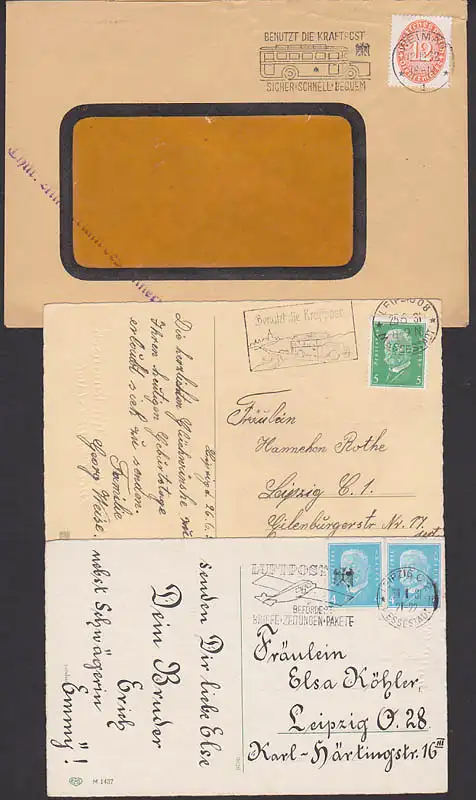 BENUTZT DIE KRAFTPOST
SICHER·SCHNELL·BEQUEM
WEIMAR
12
Benutzt die Kraftpost
LEIPZIG C8
25.6.31
5
5
Die herzlichsten Glückwünsche zu
Ihrem heutigen Geburtstage
erlaubt sich zu senden
Familie
Georg Weise.
Fräulein
Hannchen Rothe
Leipzig C. 1.
Eilenburgerstr. Nr. 17.
LUFTPOST
BEFÖRDERT
BRIEFE·ZEITUNGEN·PAKETE
LEIPZIG C
MESSESTADT
senden Dir liebe Else
Dein Bruder
Erich
nebst Schwägerin
Emmy!
Fräulein
Elsa Köhler,
Leipzig O. 28.
Karl-Härtingstr. 16 III
M 1437